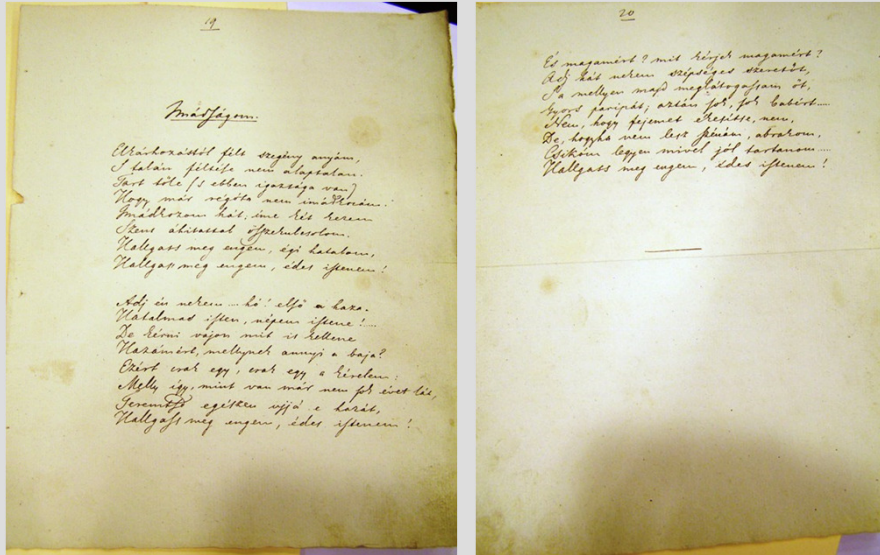 19
Imádságom.
Elkárhozástól félt szegény anyám,
S talán féltése nem alaptalan.
Tart tőle (s ebben igazsága van)
Hogy már régóta nem imádkozám.
Imádkozom hát, ime két kezem
Szent áhitattal összekulcsolom.
Hallgass meg engem, égi hatalom,
Hallgass meg engem, édes istenem!
Adj én nekem ... hó! első a haza.
Hatalmas isten, népem istene!...
De kérni vajon mit is kellene
Hazámért, mellynek annyi a baja?
Ezért csak egy, csak egy a kérelem:
Melly igy, mint van már nem sok évet lát,
Teremtsd egészen ujjá e hazát,
Hallgass meg engem, édes istenem!
20
És magamért? mit kérjek magamért?
Adj hát nekem szépséges szeretőt,
S a mellyen majd meglátogassam őt,
Gyors paripát; aztán sok, sok babért.....
Nem, hogy fejemet ékesitse, nem,
De, hogyha nem lesz szénám, abrakom,
Csikóm legyen mivel jól tartanom....
Hallgass meg engem, édes istenem!